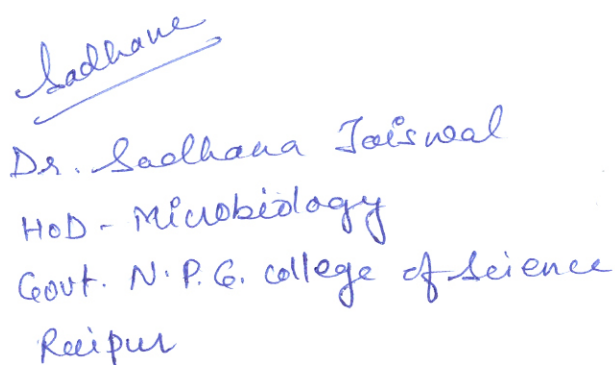 Sadhana
Dr. Sadhana Jaiswal
HOD - Microbiology
Govt. N.P.G. college of Science
Raipur